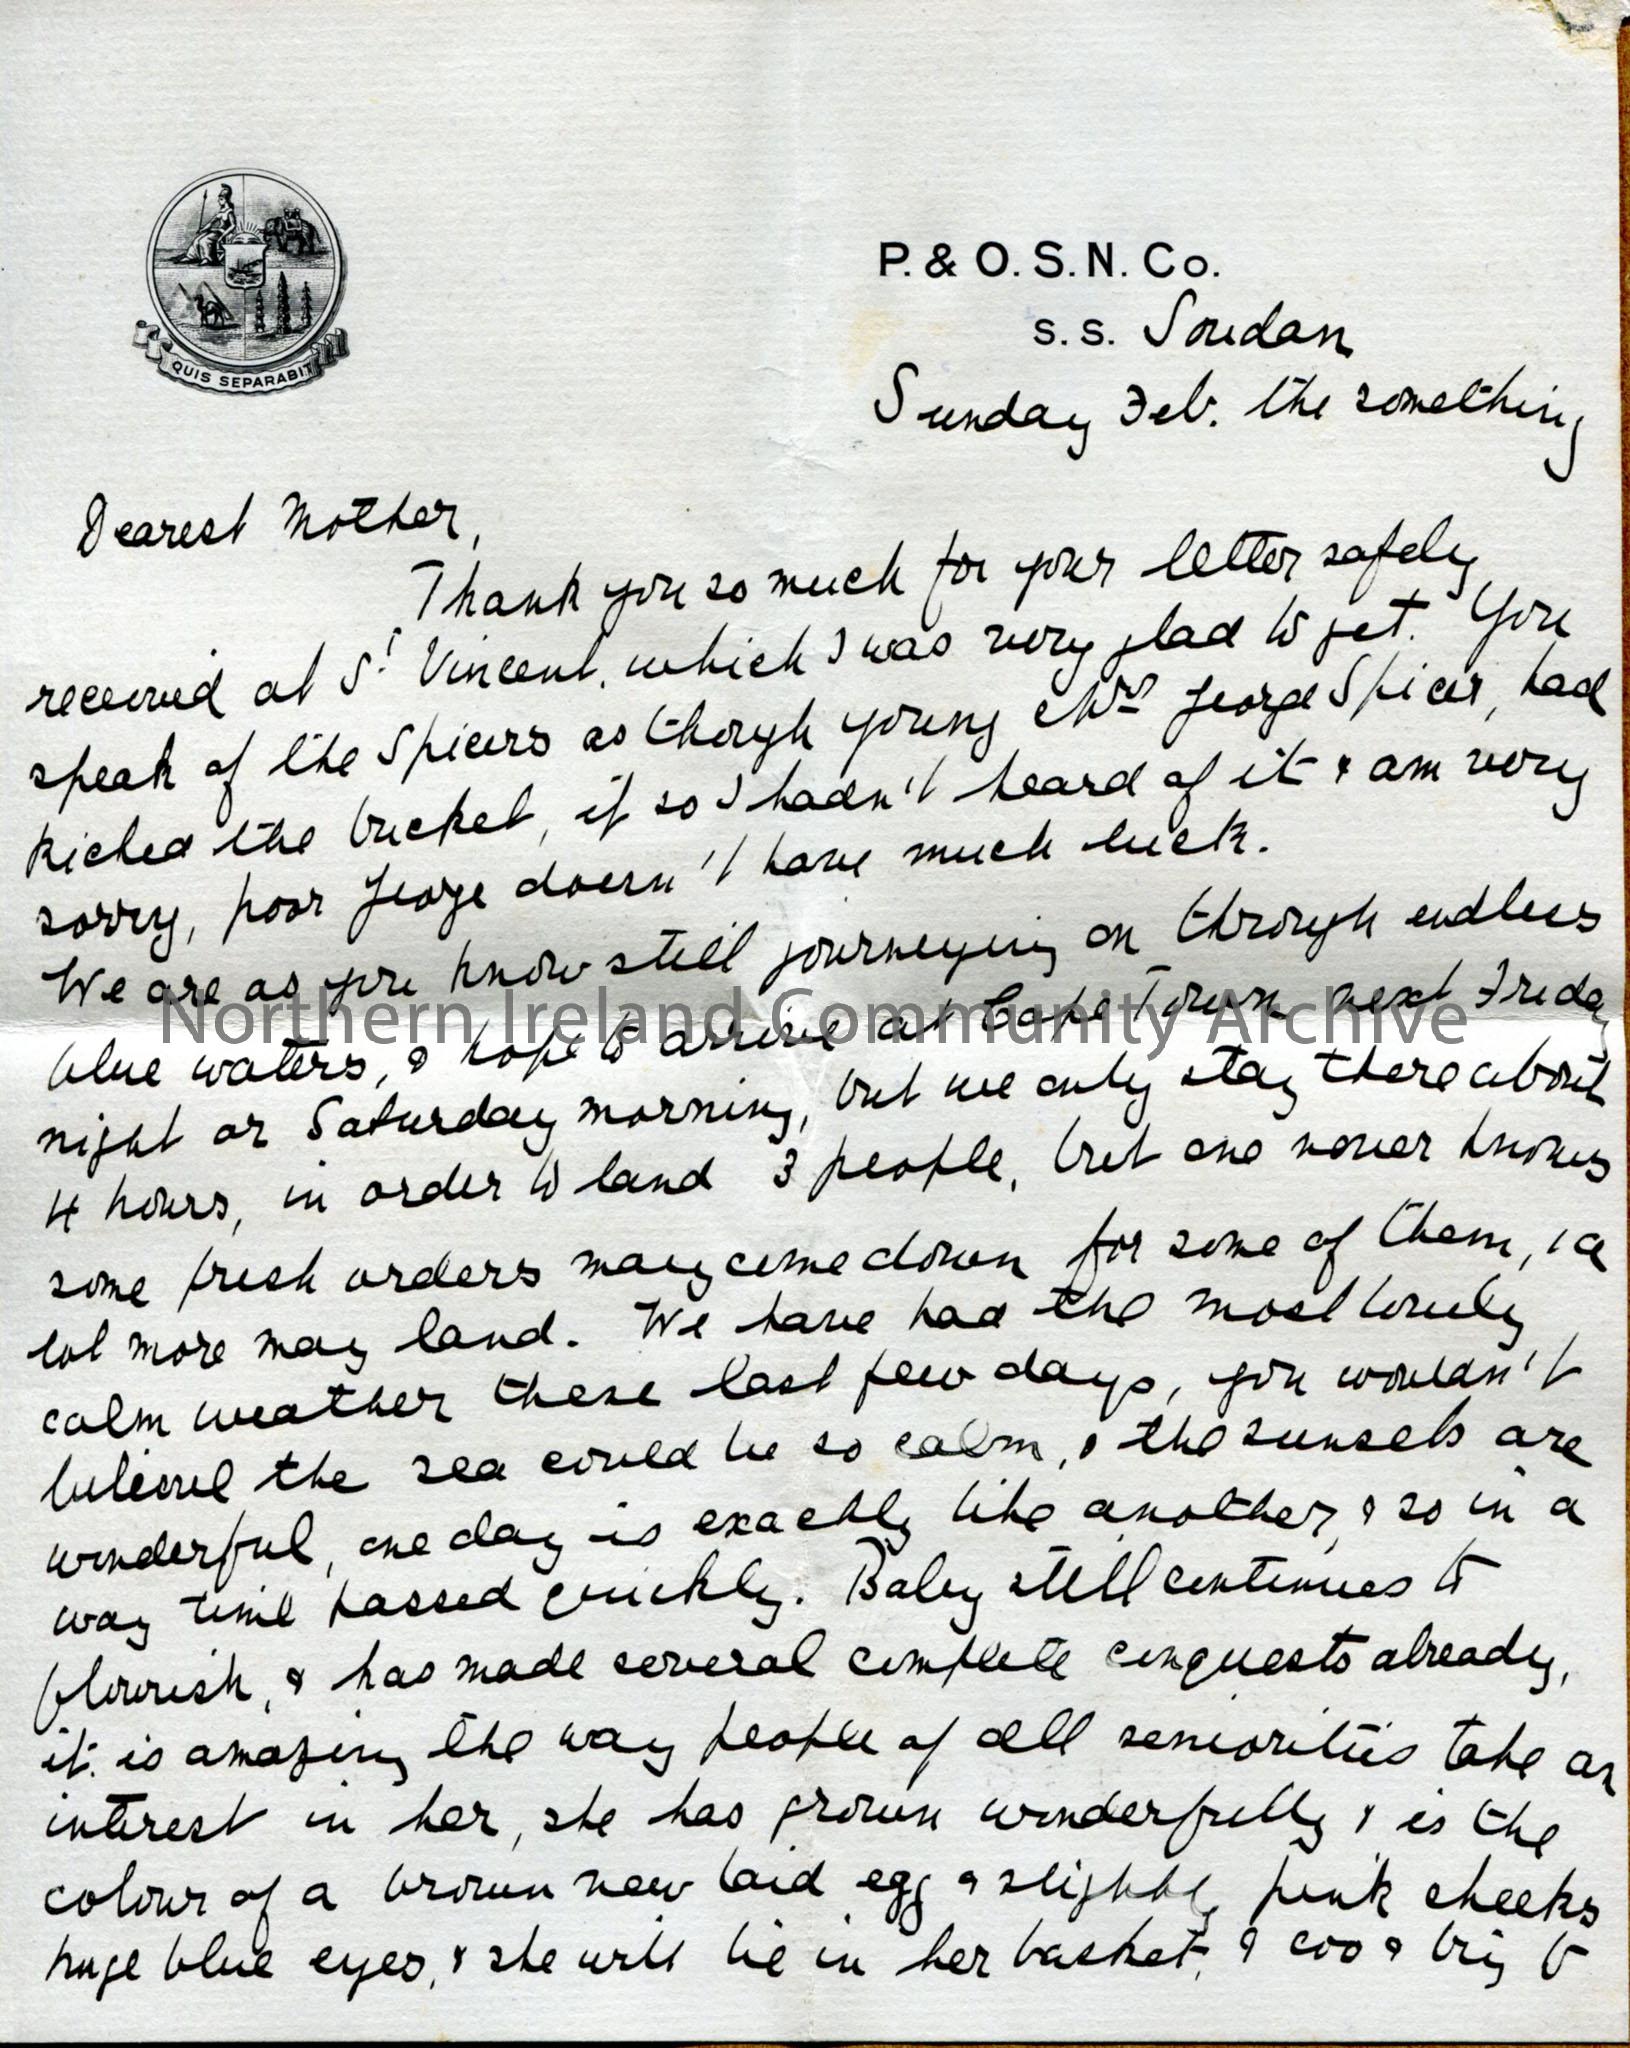 P. & O. S. N. Co.
S. S. Soudan
Sunday Feb. the something
QUIS SEPARABIT
Dearest Mother,
Thank you so much for your letter safely
received at St Vincent, which I was very glad to get. You
speak of the Spicers as though young Mrs George Spicer, had
kicked the bucket, if so I hadn't heard of it & am very
sorry, poor George doesn't have much luck.
We are as you know still journeying on through endless
blue waters, & hope to arrive at Cape Town next Friday
night or Saturday morning, but we only stay there about
4 hours, in order to land 3 people, but one never knows
some fresh orders may come down for some of them, & a
lot more may land. We have had the most lovely
calm weather these last few days, you wouldn't
believe the sea could be so calm, & the sunsets are
wonderful, one day is exactly like another, & so in a
way time passed quickly. Baby still continues to
flourish, & has made several complete conquests already,
it is amazing the way people of all seniorities take an
interest in her, she has grown wonderfully & is the
colour of a brown new laid egg & slightly pink cheeks
huge blue eyes, & she will lie in her basket, & coo & try to
Northern Ireland Community Archive